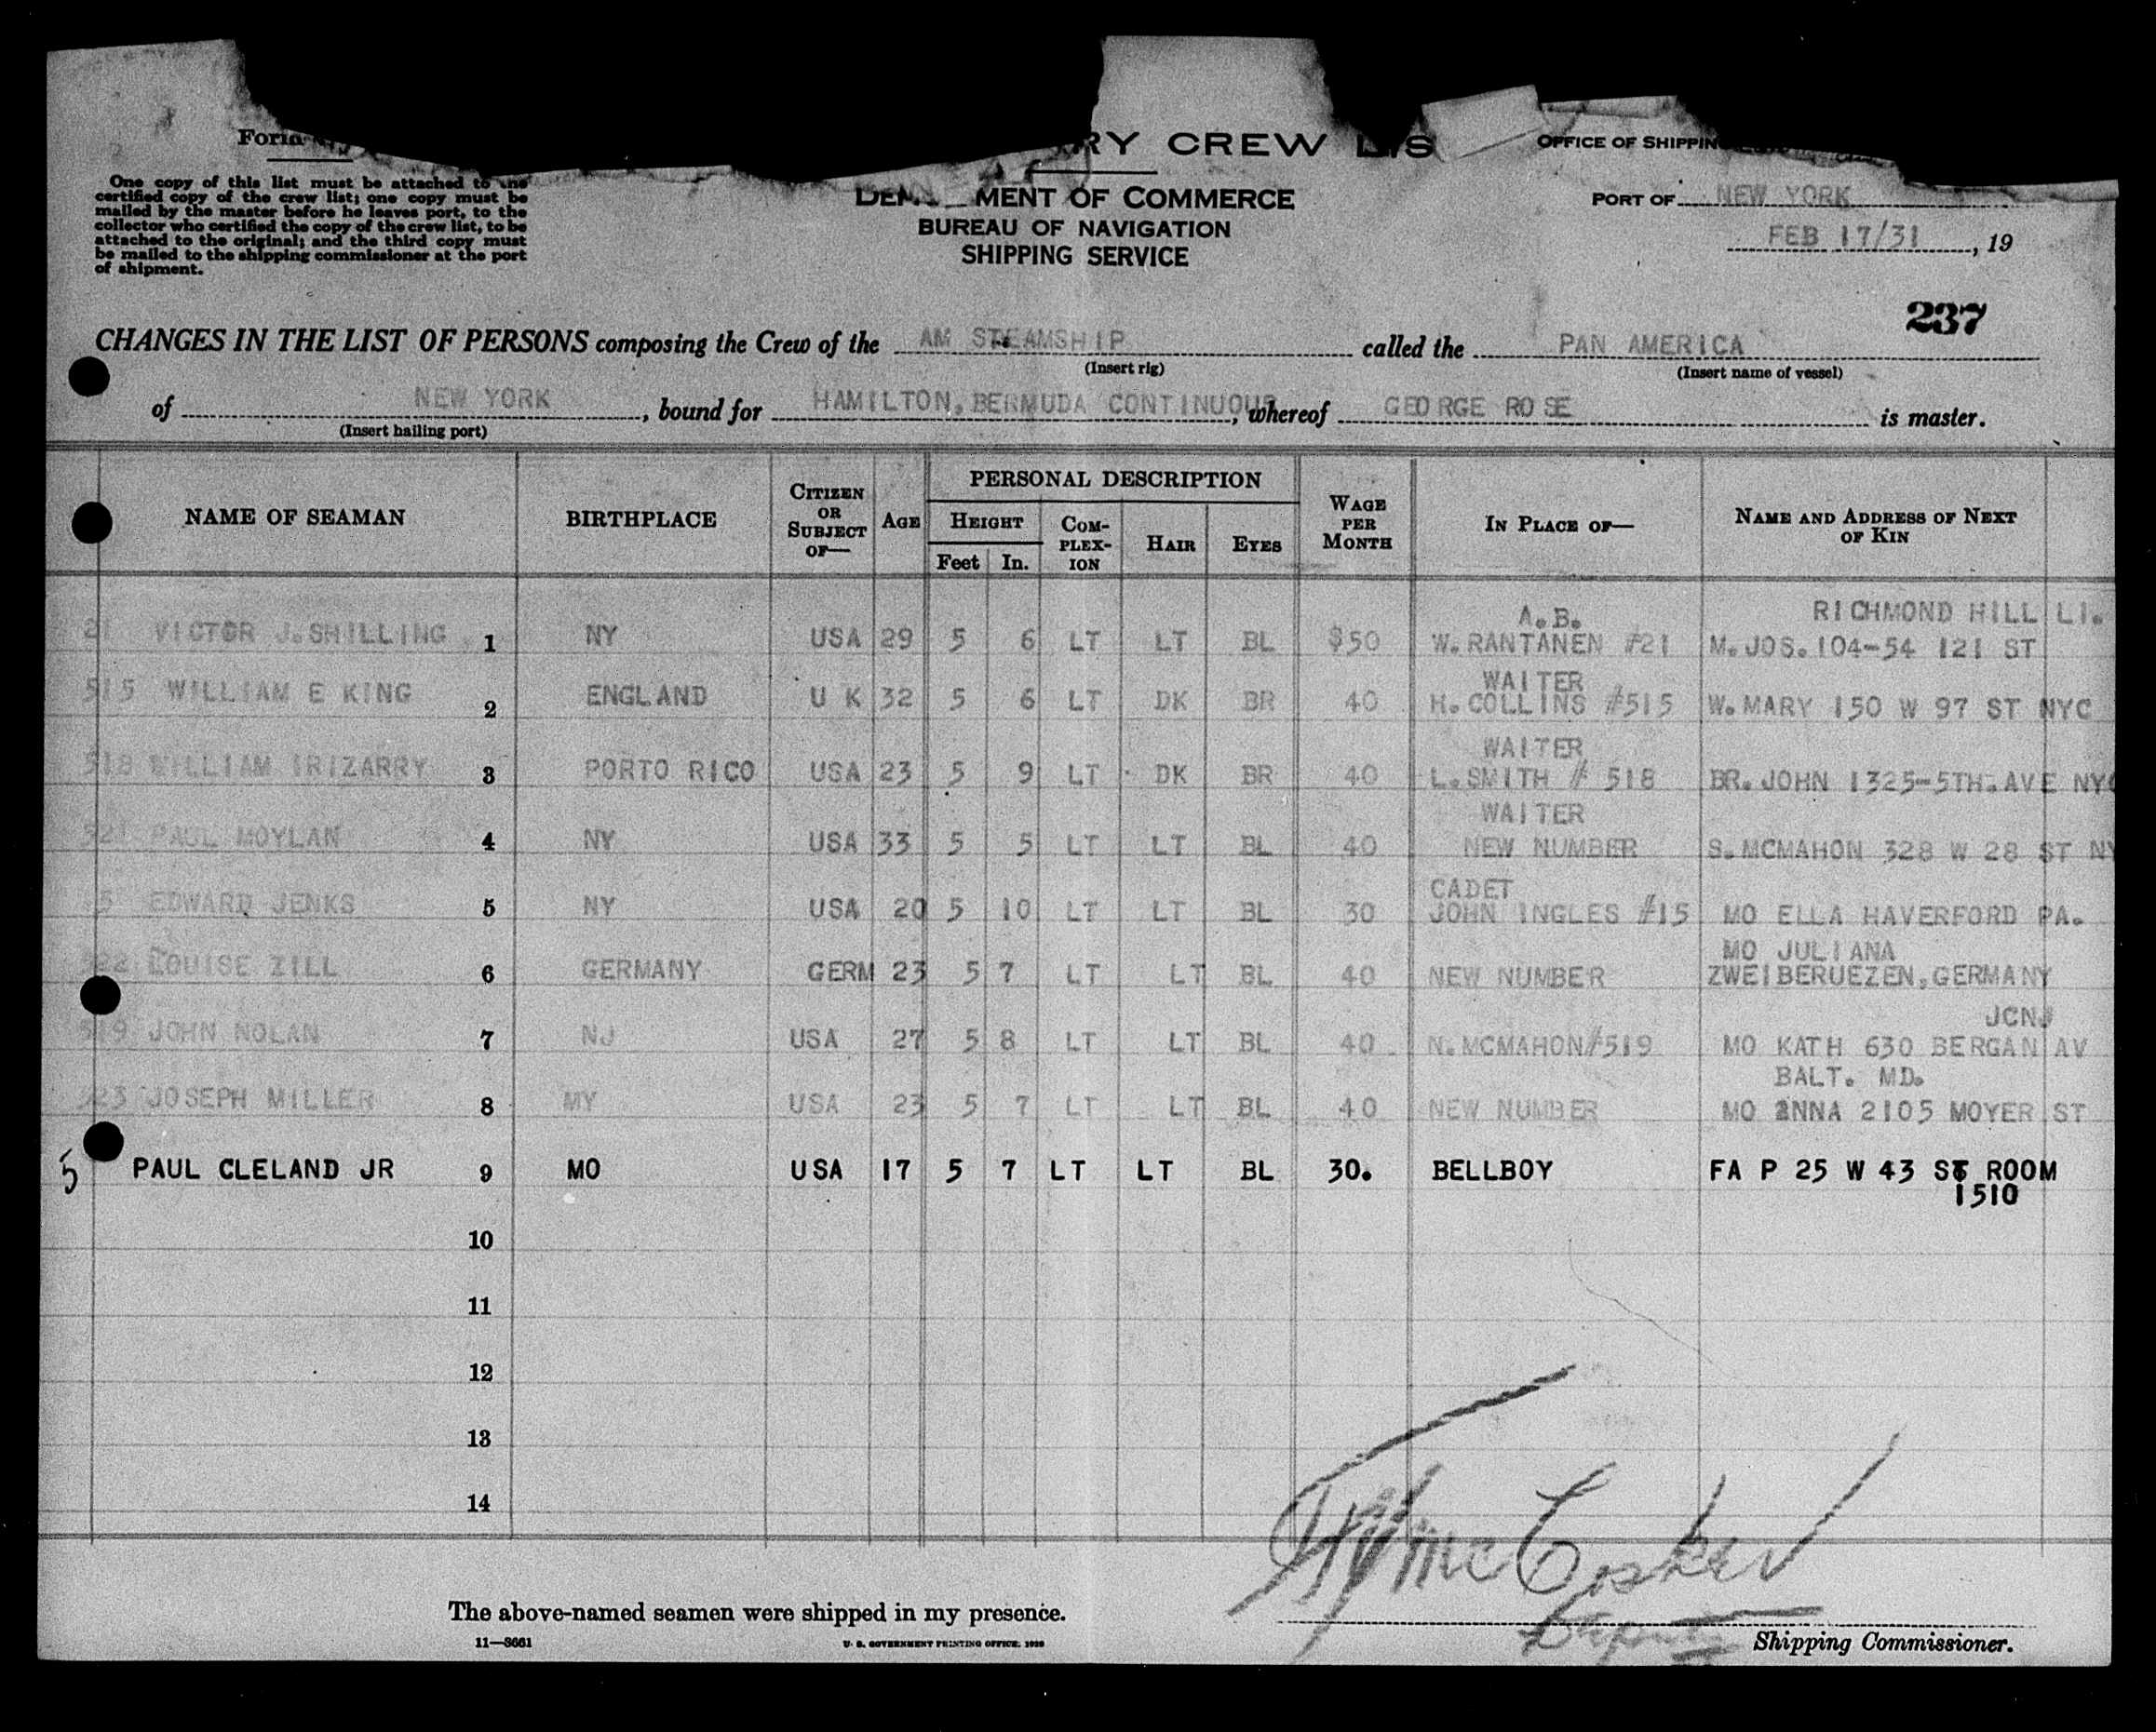 RY CREW LIS
OFFICE OF SHIPPIN
One copy of this list must be attached to the
certified copy of the crew list; one copy must be
mailed by the master before he leaves port, to the
collector who certified the copy of the crew list, to be
attached to the original; and the third copy must
be mailed to the shipping commissioner at the port
of shipment.
MENT OF COMMERCE
BUREAU OF NAVIGATION
SHIPPING SERVICE
PORT OF NEW YORK
FEB 17/31, 19
237
CHANGES IN THE LIST OF PERSONS composing the Crew of the AM STEAMSHIP called the PAN AMERICA
(Insert rig) (Insert name of vessel)
of NEW YORK, bound for HAMILTON, BERMUDA CONTINUOUS, whereof GEORGE ROSE is master.
(Insert hailing port)
NAME OF SEAMAN BIRTHPLACE CITIZEN OR SUBJECT OF— AGE PERSONAL DESCRIPTION WAGE PER MONTH IN PLACE OF— NAME AND ADDRESS OF NEXT OF KIN
HEIGHT COMPLEX-ION HAIR EYES
Feet In.
A.B. RICHMOND HILL LI.
21 VICTOR J. SHILLING 1 NY USA 29 5 6 LT LT BL $50 W. RANTANEN #21 M. JOS. 104-54 121 ST
WAITER
515 WILLIAM E KING 2 ENGLAND U K 32 5 6 LT DK BR 40 H. COLLINS #515 W. MARY 150 W 97 ST NYC
WAITER
518 WILLIAM IRIZARRY 3 PORTO RICO USA 23 5 9 LT DK BR 40 L. SMITH # 518 BR. JOHN 1325-5TH. AVE NYC
WAITER
521 PAUL MOYLAN 4 NY USA 33 5 5 LT LT BL 40 NEW NUMBER S. MCMAHON 328 W 28 ST NY
CADET
EDWARD JENKS 5 NY USA 20 5 10 LT LT BL 30 JOHN INGLES #15 MO ELLA HAVERFORD PA.
MO JULIANA
522 LOUISE ZILL 6 GERMANY GERM 23 5 7 LT LT BL 40 NEW NUMBER ZWEIBERUEZEN, GERMANY
JCNJ
519 JOHN NOLAN 7 NJ USA 27 5 8 LT LT BL 40 N. MCMAHON#519 MO KATH 630 BERGAN AV
BALT. MD.
523 JOSEPH MILLER 8 MY USA 23 5 7 LT LT BL 40 NEW NUMBER MO ANNA 2105 MOYER ST
5 PAUL CLELAND JR 9 MO USA 17 5 7 LT LT BL 30. BELLBOY FA P 25 W 43 ST ROOM
1510
10
11
12
13
14
McCosker
The above-named seamen were shipped in my presence.
Deputy Shipping Commissioner.
11—8661 U. S. GOVERNMENT PRINTING OFFICE: